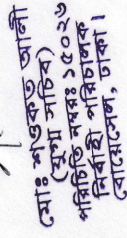 মোঃ শওকত আলী
(যুগ্ম সচিব)
পরিচিতি নম্বরঃ ১৫০২৬
নির্বাহী পরিচালক
বোয়েসেল, ঢাকা।